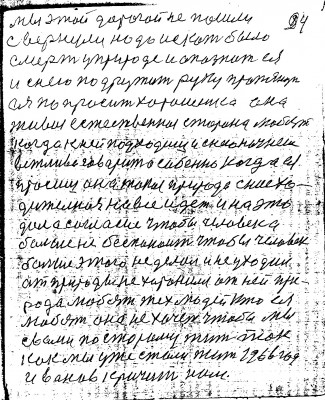 мы этой дорогой не пошли 94
свернули надо искать было
смерть у природе и опознать ея
и снею подружить руку протянут
ея попросить хорошенько она
живая естественная сторона любят
когда к ней подходиш и склоночкой
вежливо говорить особенно когда ея
просиш она такая природа снисхо-
дительная на все идет и на это
дала согласие чтобы человека
больше не беспокоить чтобы человек
больше этого не делал и не уходил
от природы не хоронил от ней при-
рода любят тех людей кто ея
любят она не хочет чтобы мы
с вами по старому жит так
как мы уже стали жит 1966 год
иванов кричит нам.